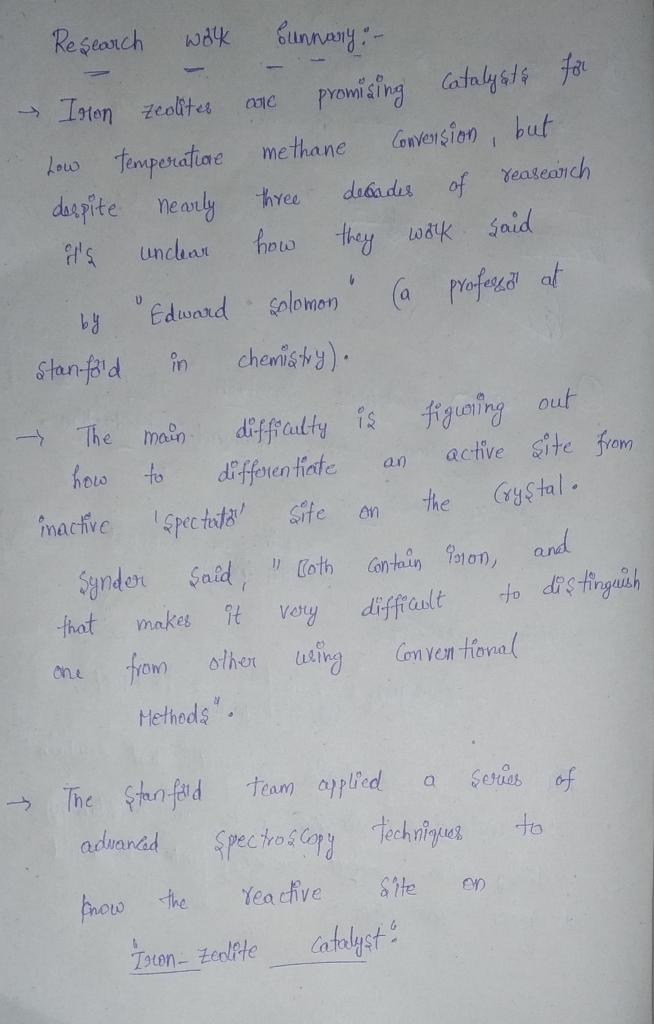 Research work Sunnary:-
→ Iron zeolites are promising catalysts for
Low temperature methane conversion, but
despite nearly three decades of reasearch
it's unclear how they work said
by "Edward Solomon" (a professor at
Stanford in chemistry).
→ The main difficulty is figuring out
how to differentiate an active site from
inactive 'spectator' site on the crystal.
Synder said, "Both contain iron, and
that makes it very difficult to distinguish
one from other using conventional
Methods".
→ The Stanford team applied a series of
advanced spectroscopy techniques to
know the reactive site on
"Iron-zeolite catalyst"